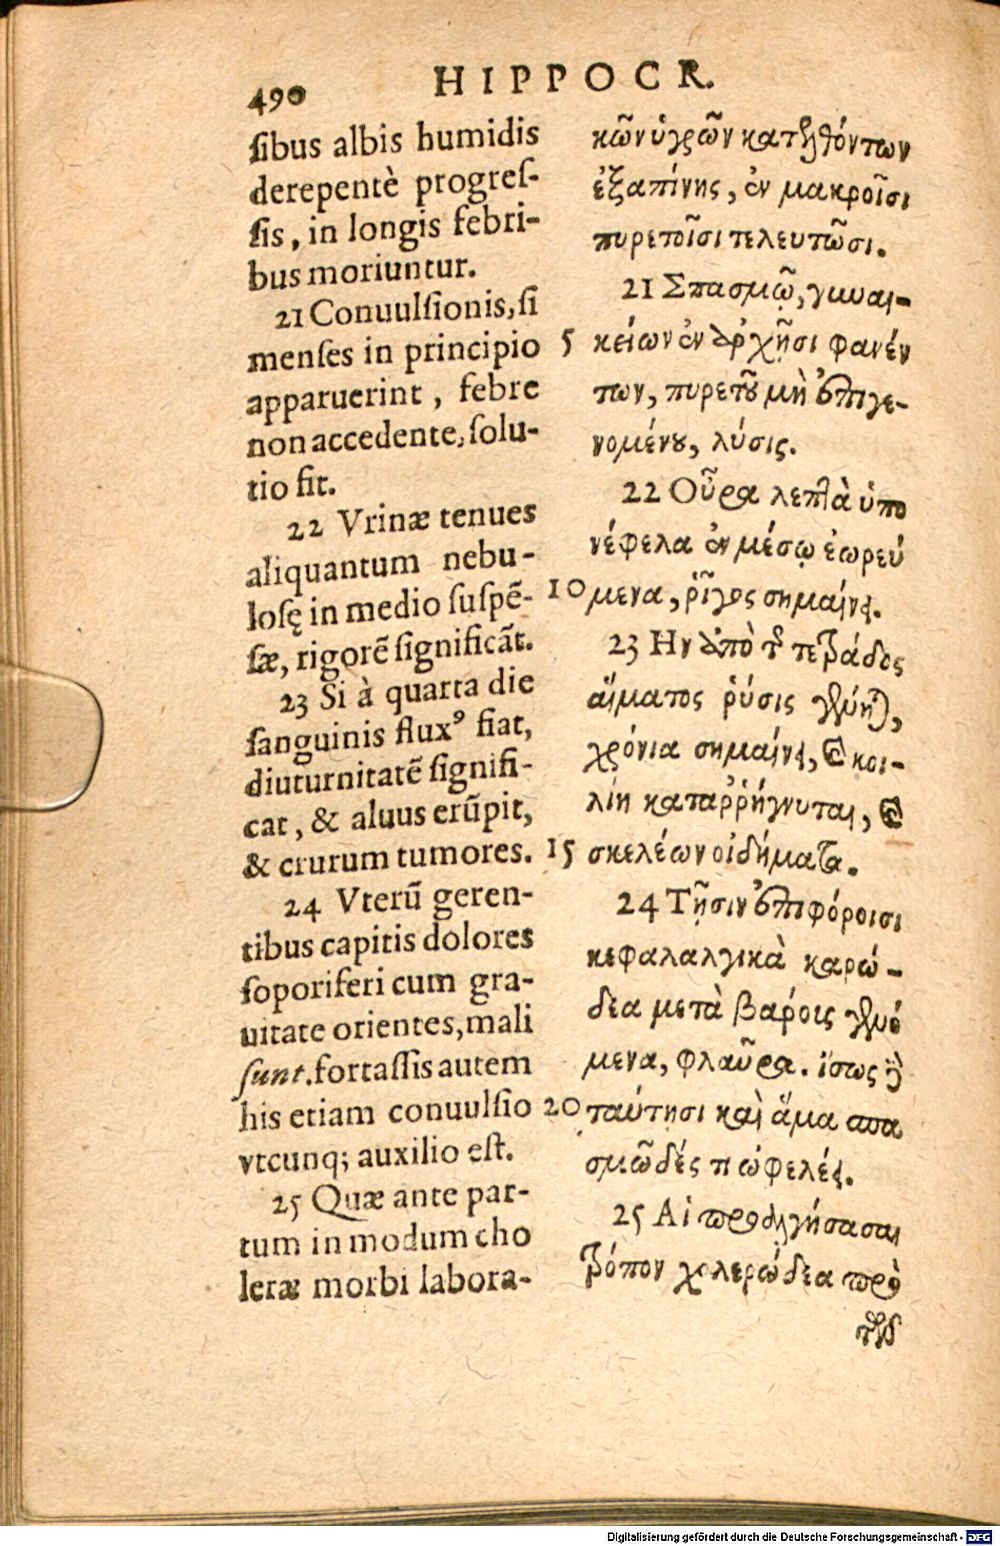 490 HIPPOCR.
ſibus albis humidis
derepentè progreſ-
ſis, in longis febri-
bus moriuntur.
21 Conuulſionis, ſi
menſes in principio
apparuerint, febre
non accedente, ſolu-
tio fit.
22 Vrinæ tenues
aliquantum nebu-
loſę in medio ſuſpẽ-
ſæ, rigorẽ ſignificãt.
23 Si à quarta die
ſanguinis fluxꝰ fiat,
diuturnitatẽ ſignifi-
cat, & aluus erũpit,
& crurum tumores.
24 Vterũ geren-
tibus capitis dolores
ſoporiferi cum gra-
uitate orientes, mali
ſunt. fortaſſis autem
his etiam conuulſio
vtcunq; auxilio eſt.
25 Quæ ante par-
tum in modum cho
leræ morbi labora-
κῶν ὑγρῶν κατελθόντων
ἐξαπίνης, ἐν μακροῖσι
πυρετοῖσι τελευτῶσι.
21 Σπασμῷ, γυναι-
5 κείων ἐν ἀρχῇσι φανέν
των, πυρετοῦ μὴ ἐπιγε-
νομένου, λύσις.
22 Οὖρα λεπτὰ ὑπο
νέφελα ἐν μέσῳ ἐωρεύ
10 μενα, ῥῖγος σημαίνει.
23 Ην ἀπὸ τῆς τετράδος
αἵματος ῥύσις γένηται,
χρόνια σημαίνει, καὶ κοι-
λίη καταῤῥήγνυται, καὶ
15 σκελέων οἰδήματα.
24 Τῇσιν ἐπιφόροισι
κεφαλαλγικὰ καρώ-
δεα μετὰ βάρεις γενό
μενα, φλαῦρα. ἴσως δὲ
20 ταύτῃσι καὶ ἅμα σπα
σμῶδές τι ὠφελέει.
25 Αἱ προδιηγήσασαι
τρόπον χολερώδεα πρὸ
τοῦ
Digitalisierung gefördert durch die Deutsche Forschungsgemeinschaft - DFG